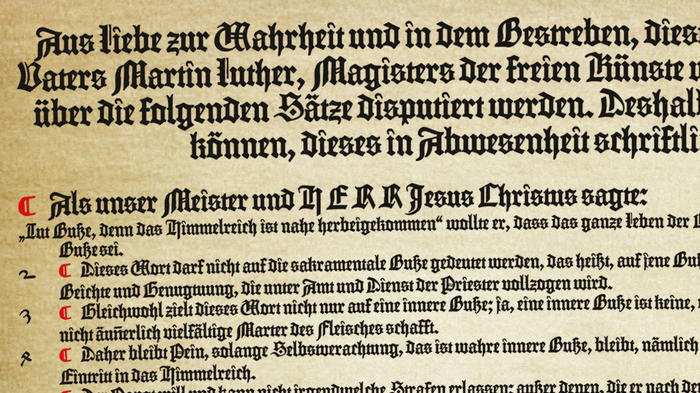 Aus Liebe zur Wahrheit und in dem Bestreben, dies
Vaters Martin Luther, Magisters der freien Künste
über die folgenden Sätze disputiert werden. Deshal
können, dieses in Abwesenheit schriftli
¶ Als unser Meister und HERR Jesus Christus sagte:
„Tut Buße, denn das Himmelreich ist nahe herbeigekommen“ wollte er, dass das ganze Leben der
Buße sei.
2 ¶ Dieses Wort darf nicht auf die sakramentale Buße gedeutet werden, das heißt, auf jene Buß
Beichte und Genugtuung, die unter Amt und Dienst der Priester vollzogen wird.
3 ¶ Gleichwohl zielt dieses Wort nicht nur auf eine innere Buße; ja, eine innere Buße ist keine,
nicht äußerlich vielfältige Marter des Fleisches schafft.
4 ¶ Daher bleibt Pein, solange Selbstverachtung, das ist wahre innere Buße, bleibt, nämlich
Eintritt in das Himmelreich.
will und kann nicht irgendwelche Strafen erlassen; außer denen, die er nach de